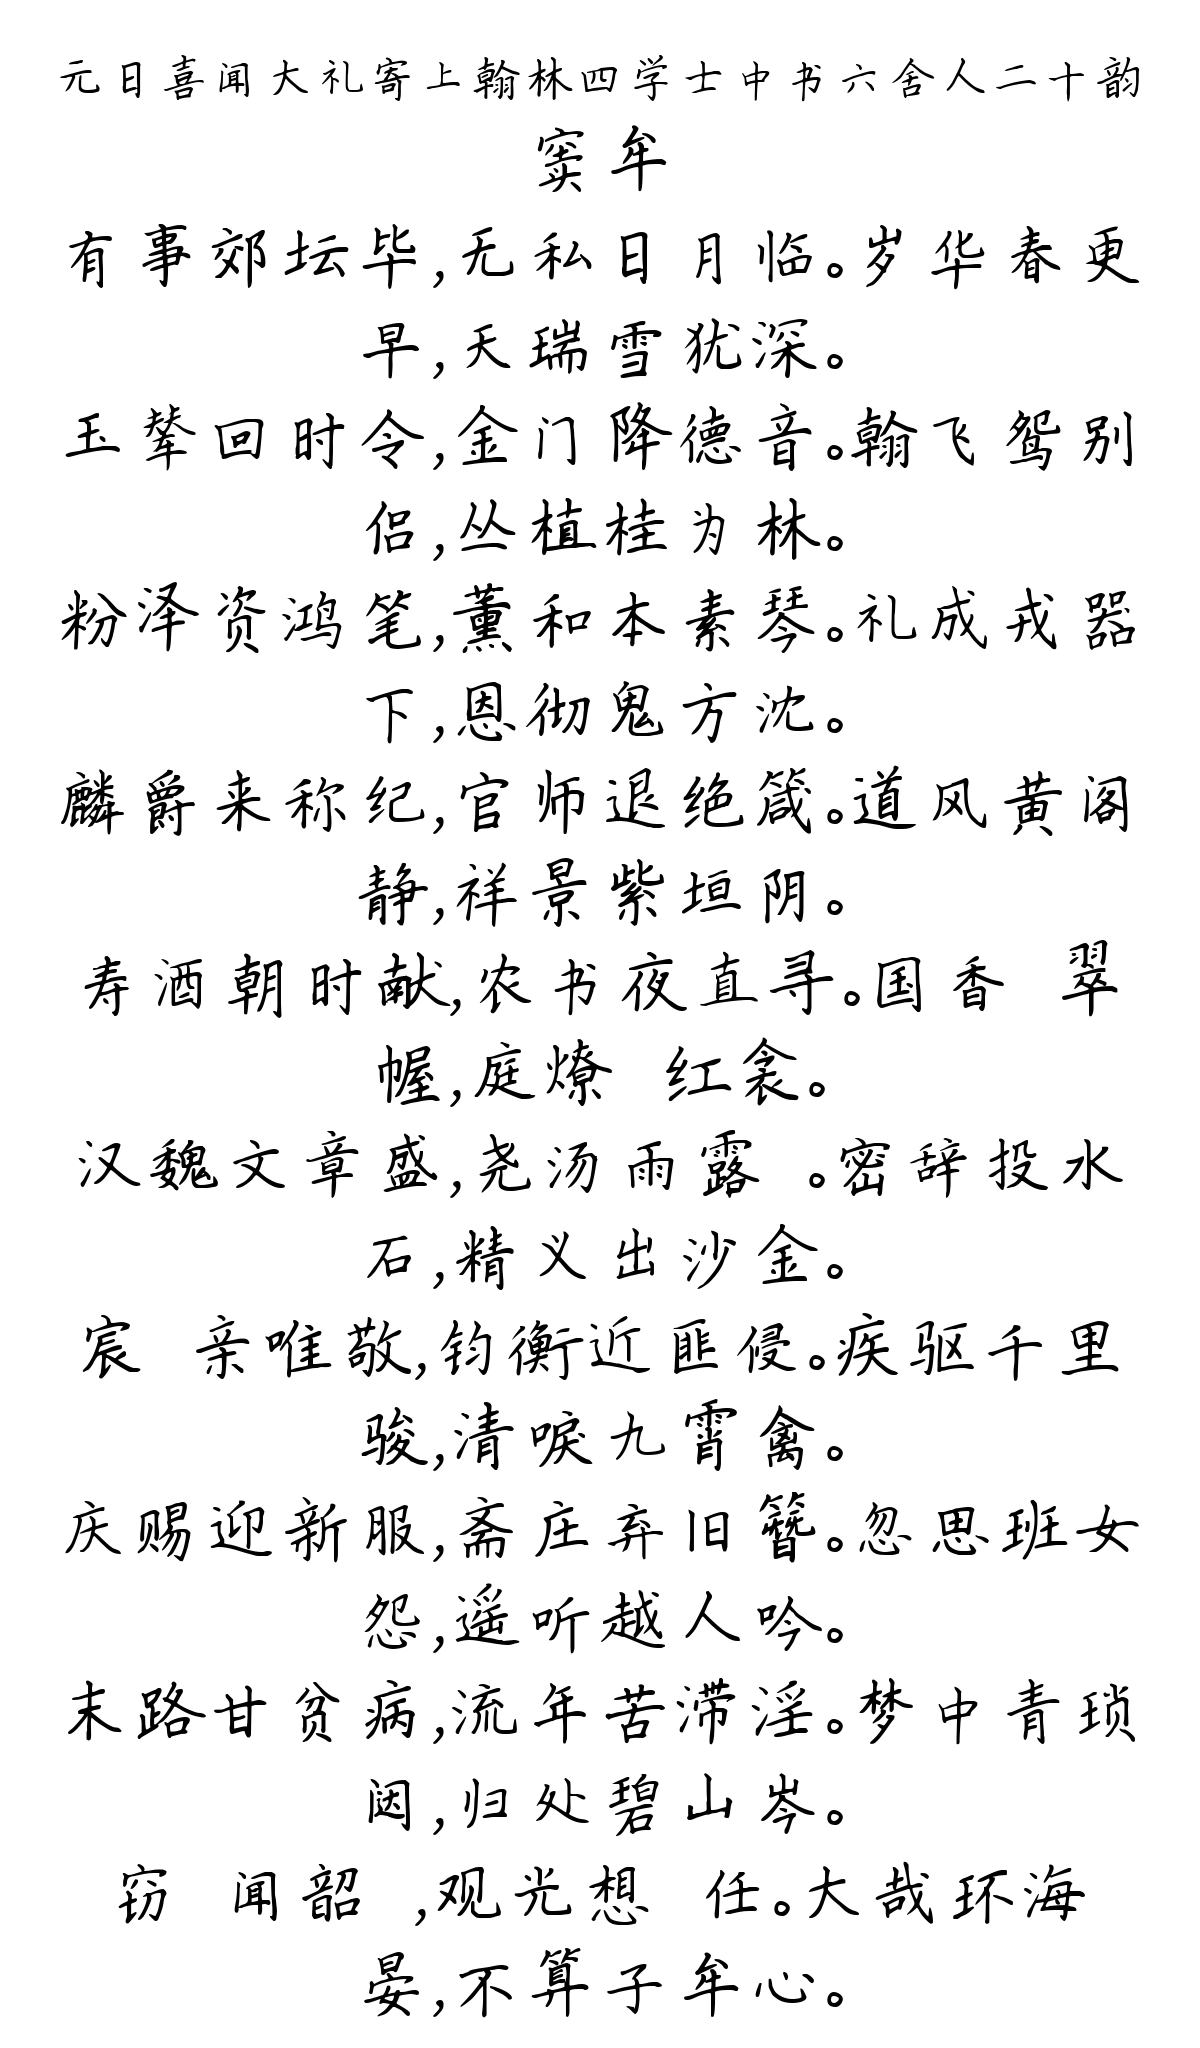 元日喜闻大礼寄上翰林四学士中书六舍人二十韵
窦牟
有事郊坛毕,无私日月临。岁华春更
早,天瑞雪犹深。
玉辇回时令,金门降德音。翰飞鸳别
侣,丛植桂为林。
粉泽资鸿笔,薰和本素琴。礼成戎器
下,恩彻鬼方沈。
麟爵来称纪,官师退绝箴。道风黄阁
静,祥景紫垣阴。
寿酒朝时献,农书夜直寻。国香 翠
幄,庭燎 红衾。
汉魏文章盛,尧汤雨露 。密辞投水
石,精义出沙金。
宸 亲唯敬,钧衡近匪侵。疾驱千里
骏,清唳九霄禽。
庆赐迎新服,斋庄弃旧簪。忽思班女
怨,遥听越人吟。
末路甘贫病,流年苦滞淫。梦中青琐
闼,归处碧山岑。
窃 闻韶 ,观光想 任。大哉环海
晏,不算子牟心。